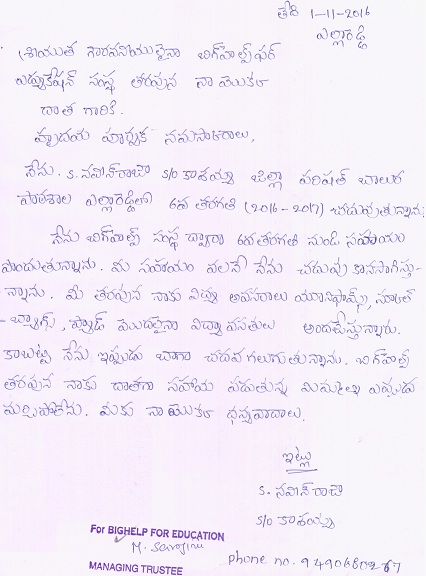 తేది 1-11-2016
ఎల్లారెడ్డి
శ్రీయుత గౌరవనీయులైన బిగ్‌హెల్ప్ ఫర్
ఎడ్యుకేషన్ సంస్థ తరపున నా యొక్క
దాత గారికి.
హృదయ పూర్వక నమస్కారాలు,
నేను. S. నవీన్ S/o కాశయ్య జిల్లా పరిషత్ బాలుర
పాఠశాల ఎల్లారెడ్డిలో 6వ తరగతి (2016-2017) చదువుతున్నాను.
నేను బిగ్‌హెల్ప్ సంస్థ ద్వారా 6వ తరగతి నుండి సహాయం
పొందుతున్నాను. మీ సహాయం వలనే నేను చదువు కొనసాగిస్తు-
న్నాను. మీ తరపున నాకు విద్యా అవసరాలు యూనిఫామ్స్, స్కూల్
-బ్యాగ్స్, ప్యాడ్ మొదలైన విద్యా వసతులు అందజేస్తున్నారు.
కాబట్టి నేను ఇప్పుడు బాగా చదవగలుగుతున్నాను. బిగ్‌హెల్ప్
తరపున నాకు దాతగా సహాయ పడుతున్న మిమ్మల్ని ఎప్పుడు
మర్చిపోలేను. మీకు నా యొక్క ధన్యవాదాలు.
ఇట్లు
S. నవీన్
S/o కాశయ్య
For BIGHELP FOR EDUCATION
M. Sarojini
MANAGING TRUSTEE
phone no.